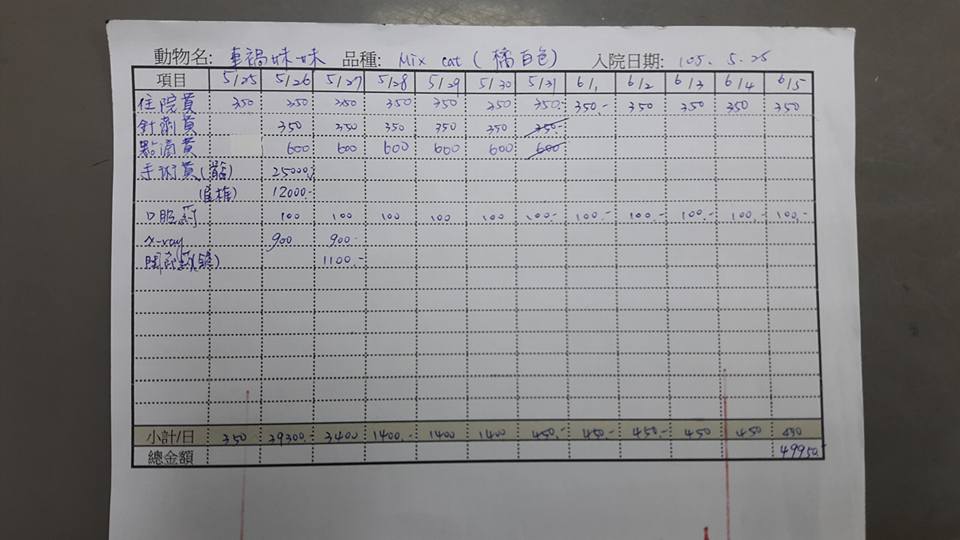 動物名: 車禍妹妹 品種: Mix cat (橘白色) 入院日期: 105. 5. 25
項目 5/25 5/26 5/27 5/28 5/29 5/30 5/31 6/1 6/2 6/3 6/4 6/5
住院費 350 350 350 350 350 350 350.- 350.- 350 350 350 350
針劑費 350 350 350 350 350 350.-
點滴費 600 600 600 600 600 600
手術費 25000.-
12000.-
口服藥 100 100 100 100 100 100.- 100.- 100.- 100.- 100.- 100.-
x-ray 900 900.-
1100.-
小計/日 350 39300.- 3400 1400.- 1400 1400 450.- 450.- 450.- 450 450 450
總金額 49950